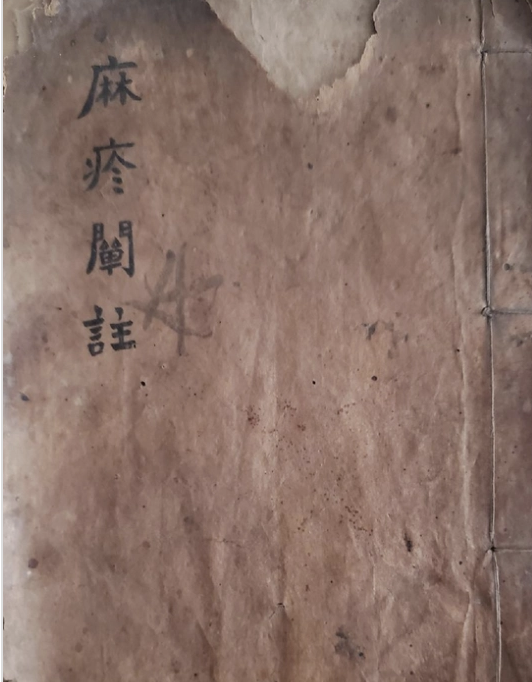 麻疹闡註